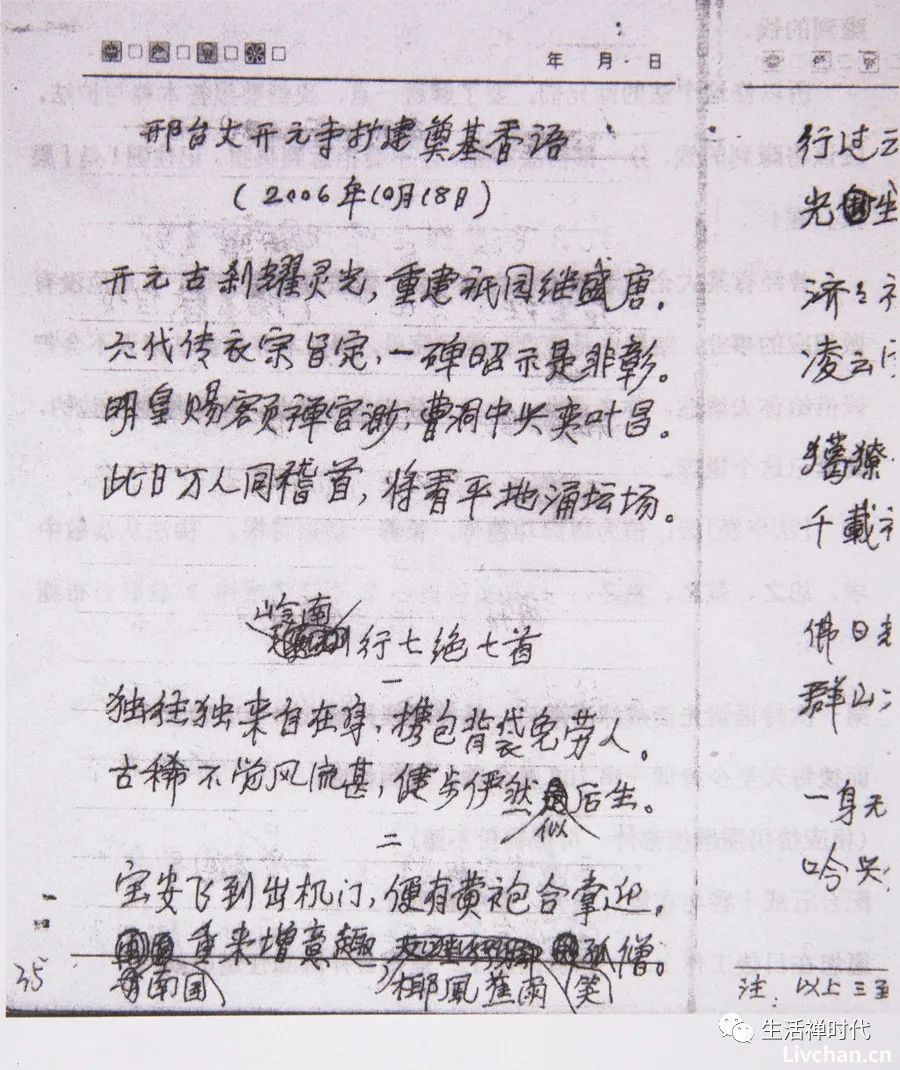 年 月 日
邢台大开元寺抄建奠基香语
(2006年10月18日)
开元古刹耀灵光，重建祇园继盛唐。
六代传衣宗旨定，一碑昭示是非彰。
明皇赐额禅宫渺，曹洞中兴奕叶昌。
此日万人同稽首，将看平地涌坛场。
岭南
行七绝七首
一
独往独来自在身，携包背袋免劳人。
古稀不觉风流甚，健步俨然后生。
似
二
宝安飞到出机门，便有黄袍合掌迎。
重来增意趣 孤僧。
南国 椰風蕉雨 笑
35
行过
光
济々
凌云
獦獠
千載
佛日
群山
一身无
哈哈
注：以上三
生活禅时代
Livchan.cn